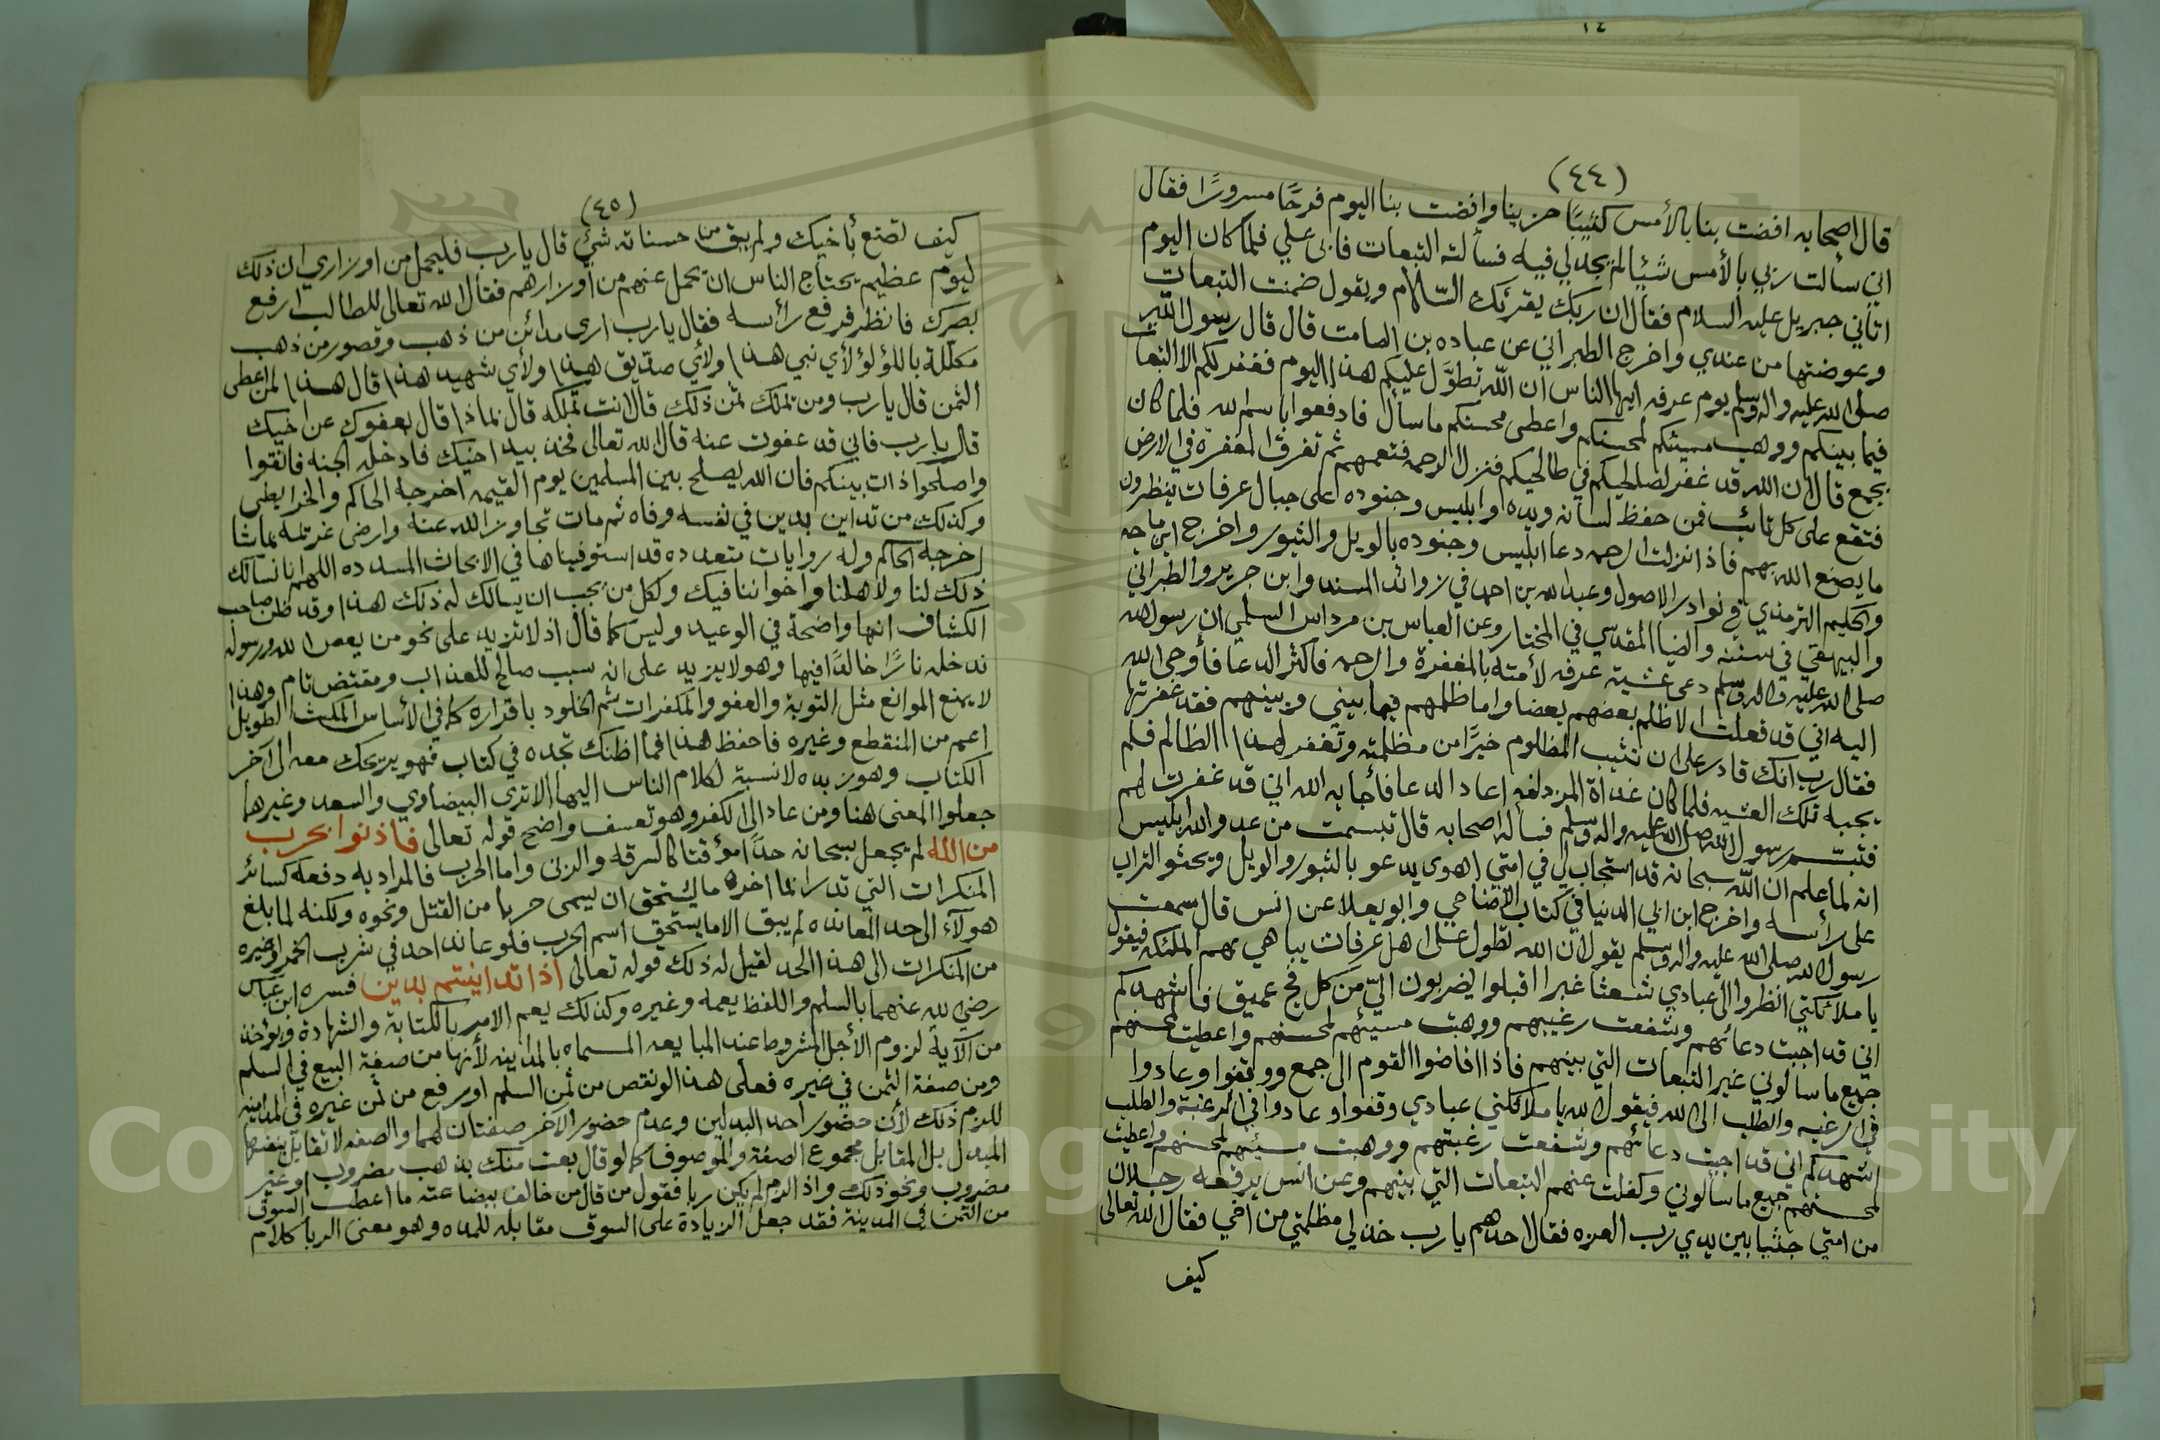 (٤٤)
قال اصحابه افضت بنا بالأمس كئيبًا حزينا وافضت بنا اليوم فرحًا مسرورًا فقال
اني سألت ربي بالأمس شيئا لم يجد لي فيه فسألته التبعات فابى علي فلما كان اليوم
اتاني جبريل عليه السلام فقال ان ربك يقرئك السّلام ويقول ضمنت التبعات
وعوضتها من عندي واخرج الطبراني عن عباده بن الصامت قال قال رسول الله
صلى الله عليه واله وسلم يوم عرفه ايها الناس ان اللّه تطوّل عليكم هذا اليوم فغفر لكم الا التبعات
فيما بينكم ووهب مسيئكم لمحسنكم واعطى محسنكم ما سأل فادفعوا باسم الله فلما كان
بجمع قال ان الله قد غفر لصالحيكم في طالحيكم فتنزل الرحمه فتعمهم ثم تفرق المغفرة في الارض
فتقع على كل تائب فمن حفظ لسانه ويده وابليس وجنوده على جبال عرفات ينظرون
ما يصنع الله بهم فاذا نزلت الرحمه دعا ابليس وجنوده بالويل والثبور واخرج ابن ماجه
والحكيم الترمذي في نوادر الاصول وعبدالله بن احمد في زوائد المسند وابن جرير والطبراني
والبيهقي في سننه والضيا المقدسي في المختاره وعن العباس بن مرداس السلمي ان رسول الله
صلى الله عليه واله وسلم دعى عشية عرفه لأمته بالمغفرة والرحمه فاكثر الدعا فأوحى الله
اليه اني قد فعلت الا ظلم بعضهم بعضا واما ظلمهم فيما بيني وبينهم فقد غفرتها
فقال رب انك قادر على ان تثيب المظلوم خيرًا من مظلمته وتغفر لهذا الظالم فلم
يجبه تلك العشيه فلما كان غداة المزدلفه اعاد الدعا فأجابه الله اني قد غفرت لهم
فتبسّم رسول الله صلى الله عليه واله وسلم فسأله اصحابه قال تبسمت من عدو الله ابليس
انه لما علم ان اللّه سبحانه قد استجاب لي في امتي اهوى يدعو بالثبور والويل ويحثو التراب
على رأسه واخرج ابن ابي الدنيا في كتاب الاضاحي وابو يعلا عن انس قال سمعت
رسول الله صلى الله عليه واله وسلم يقول ان الله تطول على اهل عرفات يباهي بهم الملئكه فيقول
يا ملائكتي انظروا الى عبادي شعثا غبرا اقبلوا يضربون اليّ من كل فج عميق فاشهدكم
اني قد اجبت دعائهم وشفعت رغيبهم ووهبت مسيئهم لمحسنهم واعطيت لمحسنهم
جميع ما سألوني غير التبعات التي بينهم فاذا افاضوا القوم الى جمع ووقفوا وعادوا
في الرغبه والطلب الى الله فيقول الله يا ملائكتي عبادي وقفوا وعادوا في الرغبة والطلب
اشهدكم اني قد اجبت دعائهم وشفعت رغبتهم ووهبت مسيئهم لمحسنهم واعطيت
لمحسنهم جميع ما سألوني وكفلت عنهم التبعات التي بينهم وعن انس يرفعه رجلان
من امتي جثيا بين يدي رب العزه فقال احدهم يا رب خذ لي مظلمتي من اخي فقال الله تعالى
كيف
(٤٥)
كيف تصنع بأخيك ولم يبق من حسناته شئ قال يا رب فليحمل من اوزاري ان ذلك
ليوم عظيم يحتاج الناس ان تحمل عنهم من أوزارهم فقال الله تعالى للطالب ارفع
بصرك فانظر فرفع رأسه فقال يا رب ارى مدائن من ذهب وقصور من ذهب
مكللة باللؤلؤ لأي نبي هذا ولأي صدّيق هذا ولأي شهيد هذا قال هذا لمن اعطى
الثمن قال يا رب ومن يملك ثمن ذلك قال انت تملكه قال بماذا قال بعفوك عن اخيك
قال يا رب فاني قد عفوت عنه قال الله تعالى فخذ بيد اخيك فادخله الجنه فاتقوا
واصلحوا ذات بينكم فان الله يصلح بين المسلمين يوم القيمه اخرجه الحاكم والخرايطي
وكذلك من تداين بدين في نفسه وفاه ثم مات تجاوز الله عنه وارضى غريمه بما شا
اخرجه الحاكم وله روايات متعدده قد استوفيناها في الابحاث المسدده اللهم انا نسألك
ذلك لنا ولاهلنا واخواننا فيك وكل من يجب ان يسالك له ذلك هذا وقد ظن صاحب
الكشاف انها واضحة في الوعيد وليس كما قال اذ لا تزيد على نحو من يعص الله ورسوله
ندخله نارًا خالدًا فيها وهو لا يزيد على انه سبب صالح للعذاب ومقتض تام وهذا
لا يمنع الموانع مثل التوبة والعفو والمكفرات ثم الخلود باقراره كما في الأساس المكث الطويل
اعم من المنقطع وغيره فاحفظ هذا فما اظنك تجده في كتاب فهو يريحك معه الى آخر
الكتاب وهو زبده لا نسبة لكلام الناس اليها الا ترى البيضاوي والسعد وغيرهما
جعلوا المعنى هنا ومن عاد الى الكفر وهو تعسف واضح قوله تعالى فاذنوا بحرب
من الله لم يجعل سبحانه حدًا مؤقتا كالسرقه والزنى واما الحرب فالمراد به دفعه كسائر
المنكرات التي تدرا انما اخره ما يستحق ان يسمى حربا من القتل ونحوه ولكنه لما بلغ
هولاء الى حد المعانده لم يبق الا ما يستحق اسم الحرب فلو عاند احد في شرب الخمر وغيره
من المنكرات الى هذا الحد لقيل له ذلك قوله تعالى اذا تداينتم بدين فسره ابن عباس
رضي الله عنهما بالسلم واللفظ يعمه وغيره وكذلك يعم الامر بالكتابة والشهادة ويؤخذ
من الآية لزوم الأجل المشروط عند المبايعه المسماه بالمداينه لأنها من صفة البيع في السلم
ومن صفة الثمن في غيره فعلى هذا لو نقص من ثمن السلم او رفع من ثمن غيره في المداينه
للزم ذلك لأن حضور احد البدلين وعدم حضور الآخر صفتان لهما والصفه لا تقابل ببعض
المبدل بل المقابل مجموع الصفة والموصوف كما لو قال بعت منك بذهب مضروب او غير
مضروب ونحو ذلك واذا لزم لم يكن ربا فقول من قال من خالف ببضاعته ما اعطب السوق
من الثمن في المدينة فقد جعل الزيادة على السوق مقابله للمده وهو معنى الربا كلام
Copyright © King Saud University